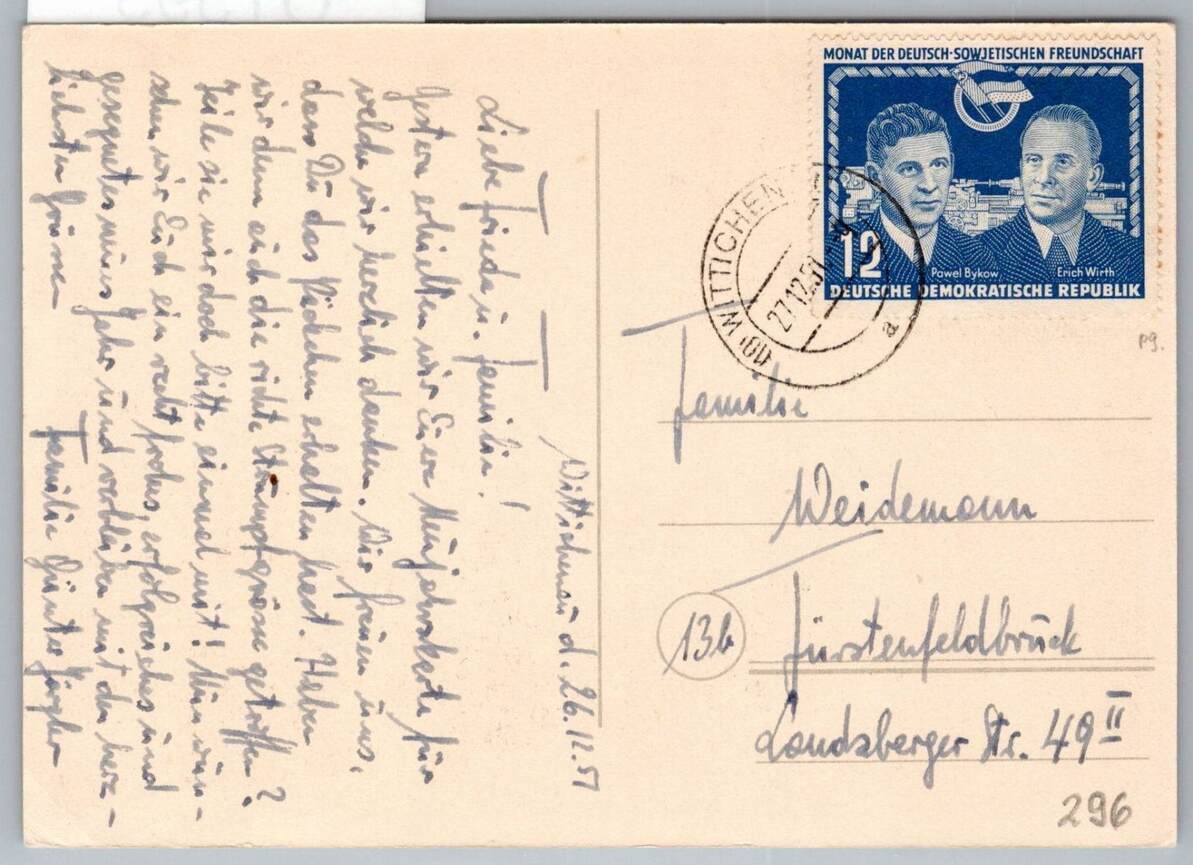 Wittichenau d. 26.12.51
Liebe Frieda u. Familie!
Gestern erhielten wir Eure Neujahrskarte für
welche wir herzlich danken. Wir freuen uns,
dass Du das Päckchen erhalten hast. Haben
wir denn auch die richte Strumpfgrösse getroffen?
Teile sie mir doch bitte einmal mit! Nun wün-
schen wir Euch ein recht frohes, erfolgreiches und
gesegnetes neues Jahr und verbleiben mit den herz-
lichsten Grüssen
Familie Günter
MONAT DER DEUTSCH-SOWJETISCHEN FREUNDSCHAFT
12
Pawel Bykow
Erich Wirth
DEUTSCHE DEMOKRATISCHE REPUBLIK
(10) WITTICHEN
27.12.51
a
pg.
Familie
Weidemann
13b
Fürstenfeldbruck
Landsberger Str. 49 II
296